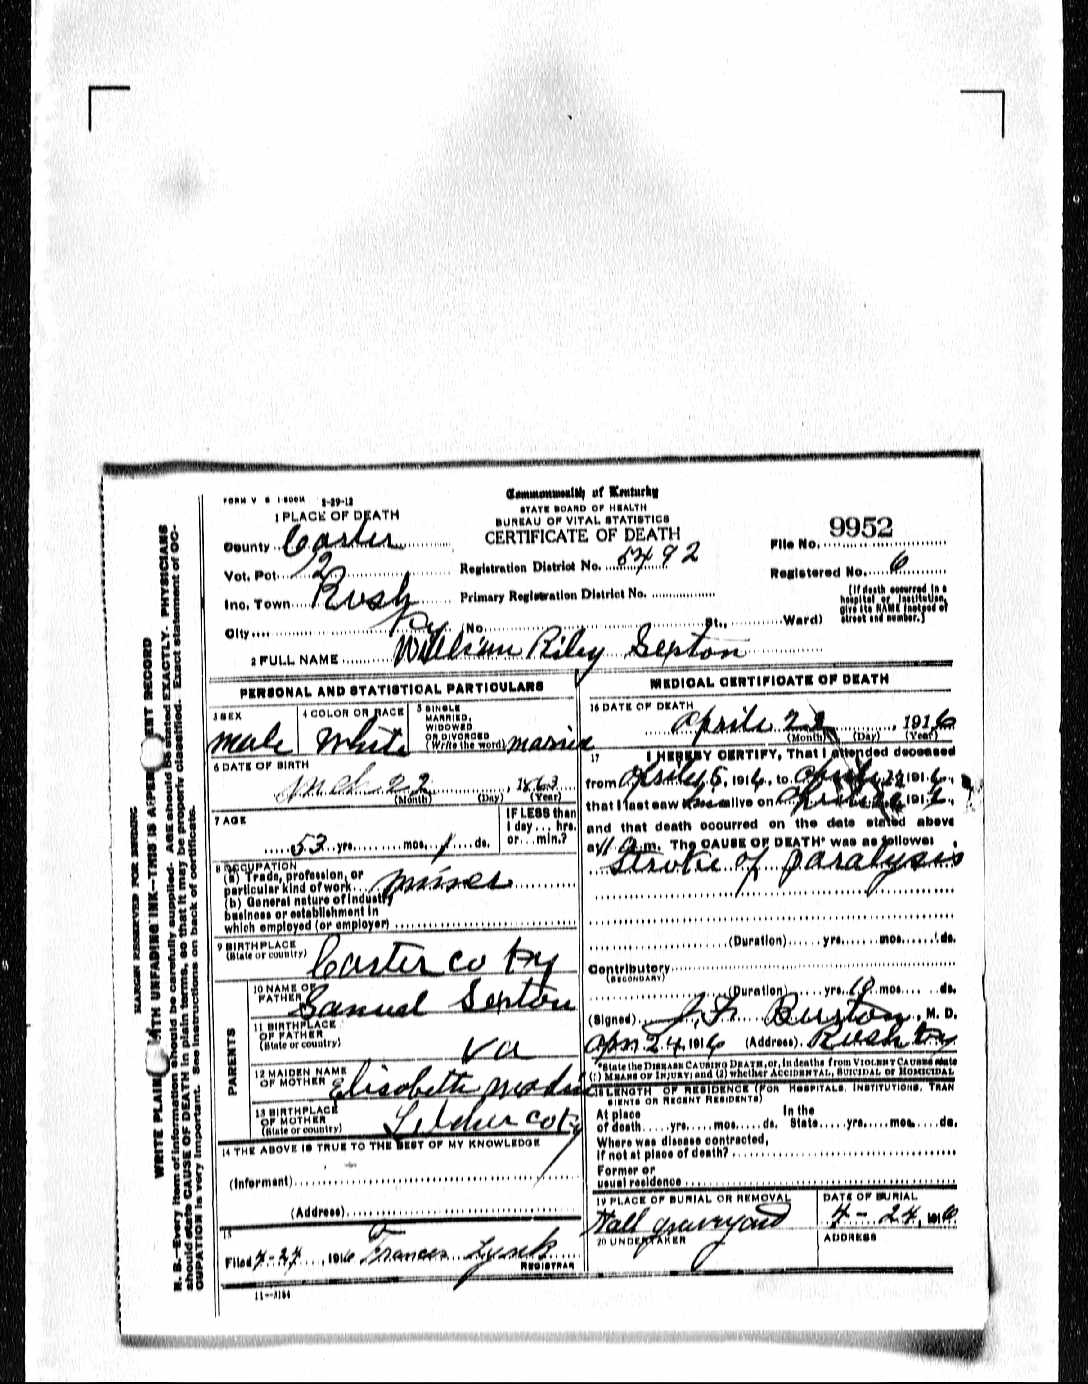 FORM V S 1-500M 2-29-12
Commonwealth of Kentucky
STATE BOARD OF HEALTH
BUREAU OF VITAL STATISTICS
CERTIFICATE OF DEATH
1 PLACE OF DEATH
County Carter
Vot. Pct. 12
Inc. Town Rush
City Ky (No. St., Ward)
Registration District No. 5492
Primary Registration District No.
File No. 9952
Registered No. 6
(If death occurred in a
hospital or institution,
give its NAME instead of
street and number.)
2 FULL NAME William Riley Sexton
PERSONAL AND STATISTICAL PARTICULARS
3 SEX
male
4 COLOR OR RACE
White
5 SINGLE
MARRIED,
WIDOWED
OR DIVORCED
(Write the word) married
6 DATE OF BIRTH
Mch 22, 1863
(Month) (Day) (Year)
7 AGE
53 yrs. mos. 1 ds.
IF LESS than
1 day ... hrs.
or ... min.?
8 OCCUPATION
(a) Trade, profession, or
particular kind of work miner
(b) General nature of industry
business or establishment in
which employed (or employer)
9 BIRTHPLACE
(State or country) Carter co Ky
PARENTS
10 NAME OF
FATHER Samuel Sexton
11 BIRTHPLACE
OF FATHER
(State or country) Va
12 MAIDEN NAME
OF MOTHER Elisabeth
13 BIRTHPLACE
OF MOTHER
(State or country) Letcher co Ky
14 THE ABOVE IS TRUE TO THE BEST OF MY KNOWLEDGE
(Informant)
(Address)
15
Filed 4-24, 1916 Frances
REGISTRAR
11-3184
MEDICAL CERTIFICATE OF DEATH
16 DATE OF DEATH
Aprile 22, 1916
(Month) (Day) (Year)
17 I HEREBY CERTIFY, That I attended deceased
from 15, 1916, to 22 1916,
that I last saw him alive on 1916,
and that death occurred on the date stated above
at 11 a.m. The CAUSE OF DEATH* was as follows:
Stroke of paralysis
(Duration) yrs. mos. ds.
Contributory
(SECONDARY)
(Duration) yrs. 10 mos. ds.
(Signed) J. F. Burton, M. D.
Apr 24, 1916 (Address) Rush Ky
*State the DISEASE CAUSING DEATH, or, in deaths from VIOLENT CAUSES state
(1) MEANS OF INJURY; and (2) whether ACCIDENTAL, SUICIDAL or HOMICIDAL
18 LENGTH OF RESIDENCE (FOR HOSPITALS, INSTITUTIONS, TRAN
SIENTS OR RECENT RESIDENTS)
At place In the
of death yrs. mos. ds. State yrs. mos. ds.
Where was disease contracted,
if not at place of death?
Former or
usual residence
19 PLACE OF BURIAL OR REMOVAL
Hall graveyard
DATE OF BURIAL
4-24, 1916
20 UNDERTAKER
ADDRESS
MARGIN RESERVED FOR BINDING
WRITE PLAINLY, WITH UNFADING INK—THIS IS A PERMANENT RECORD
N. B.—Every item of information should be carefully supplied. AGE should be stated EXACTLY. PHYSICIANS
should state CAUSE OF DEATH in plain terms, so that it may be properly classified. Exact statement of OC-
CUPATION is very important. See instructions on back of certificate.